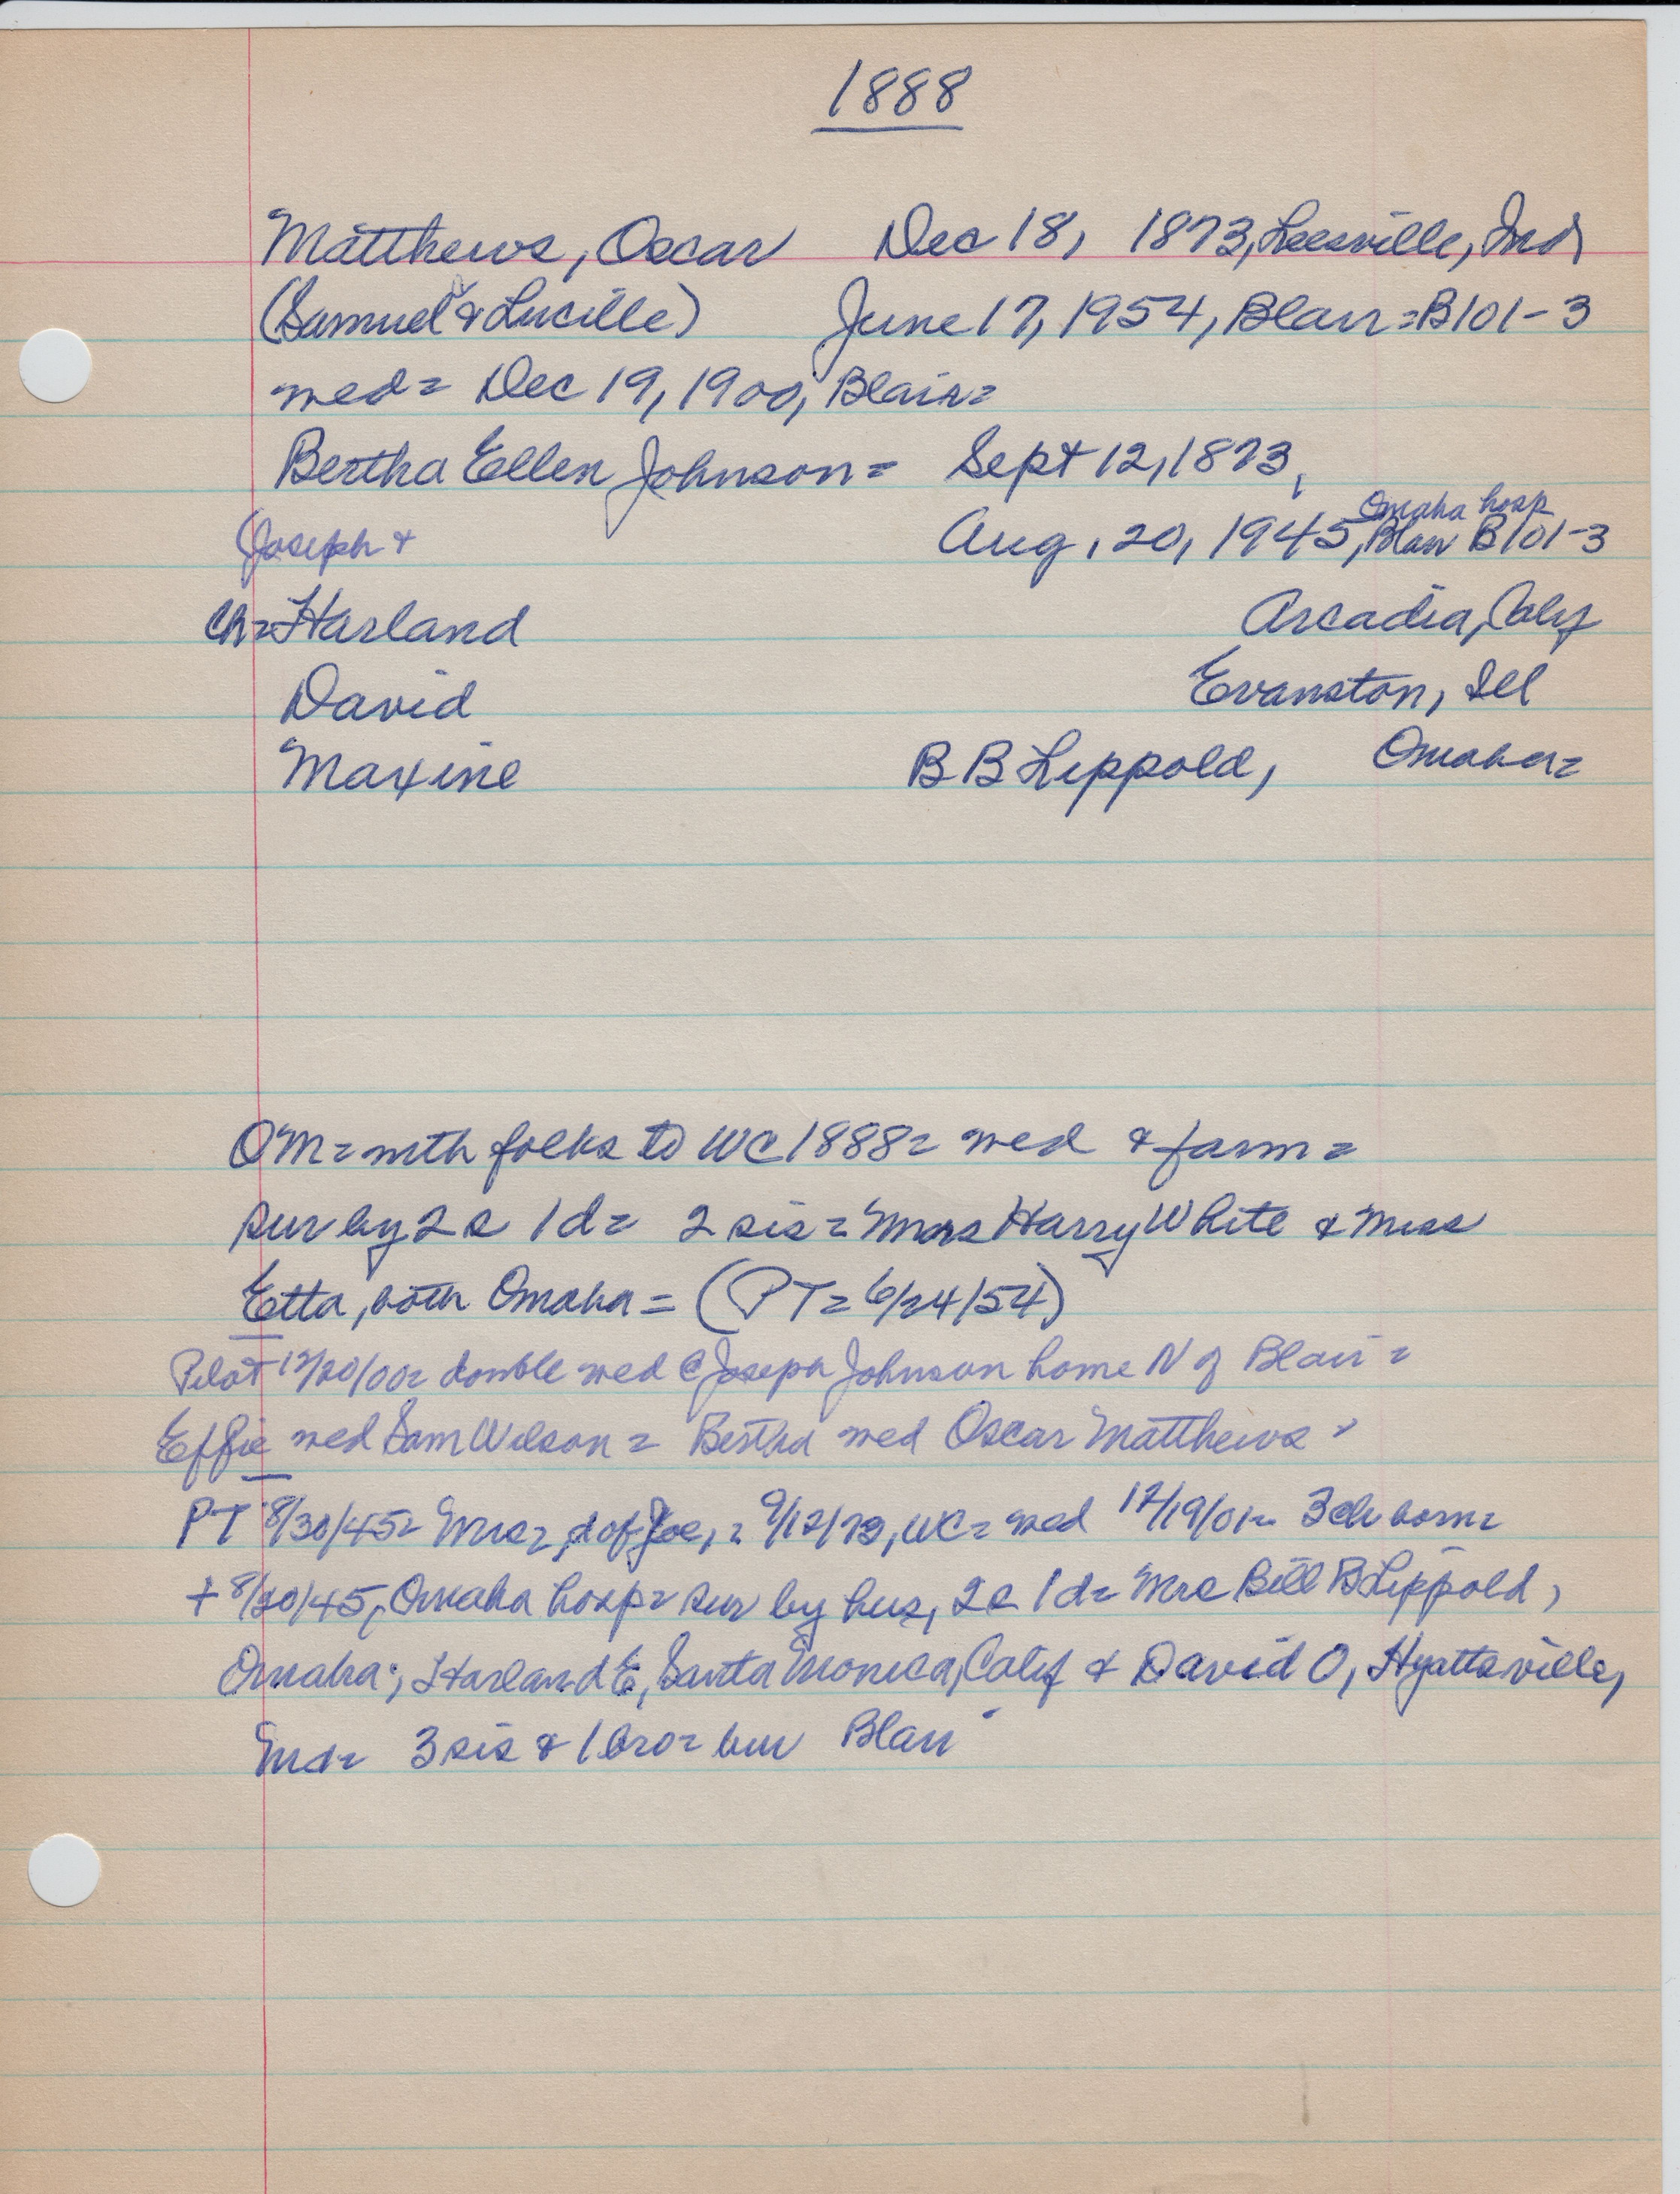 1888
Matthews, Oscar Dec 18, 1873, Leesville, Ind
(Samuel & Lucille) June 17, 1954, Blair = B101-3
wed = Dec 19, 1900, Blair =
Bertha Ellen Johnson = Sept 12, 1873,
Omaha hosp
Joseph + Aug, 20, 1945, Blair B101-3
Ch = Harland Arcadia, Calif
David Evanston, Ill
Maxine B B Lippold, Omaha =
OM = with folks to WC 1888 = wed & farm =
sur by 2s 1d = 2 sis = Mrs Harry White & Miss
Etta, both Omaha = (PT = 6/24/54)
Pilot 12/20/00 = double wed @ Joseph Johnson home N of Blair =
Effie wed Sam Wilson = Bertha wed Oscar Matthews
PT 8/30/45 = Mrs = d of Joe, = 9/12/73, WC = wed 12/19/01 = 3 ch born =
+ 8/20/45, Omaha hosp = sur by hus, 2s 1d = Mrs Bill B Lippold,
Omaha; Harland E, Santa Monica, Calif & David O, Hyattsville,
Md = 3 sis & 1 bro = bur Blair